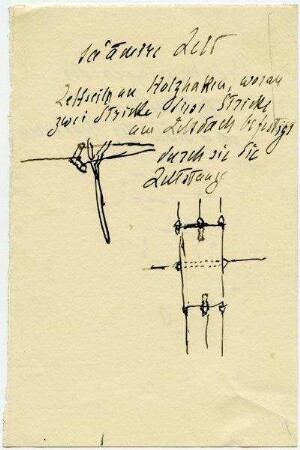 Zelt
Zeltseile an Holzhaken, woran
zwei Stricke, diese Stricke
am Zeltdach befestigt
durch sie die
Zeltstange